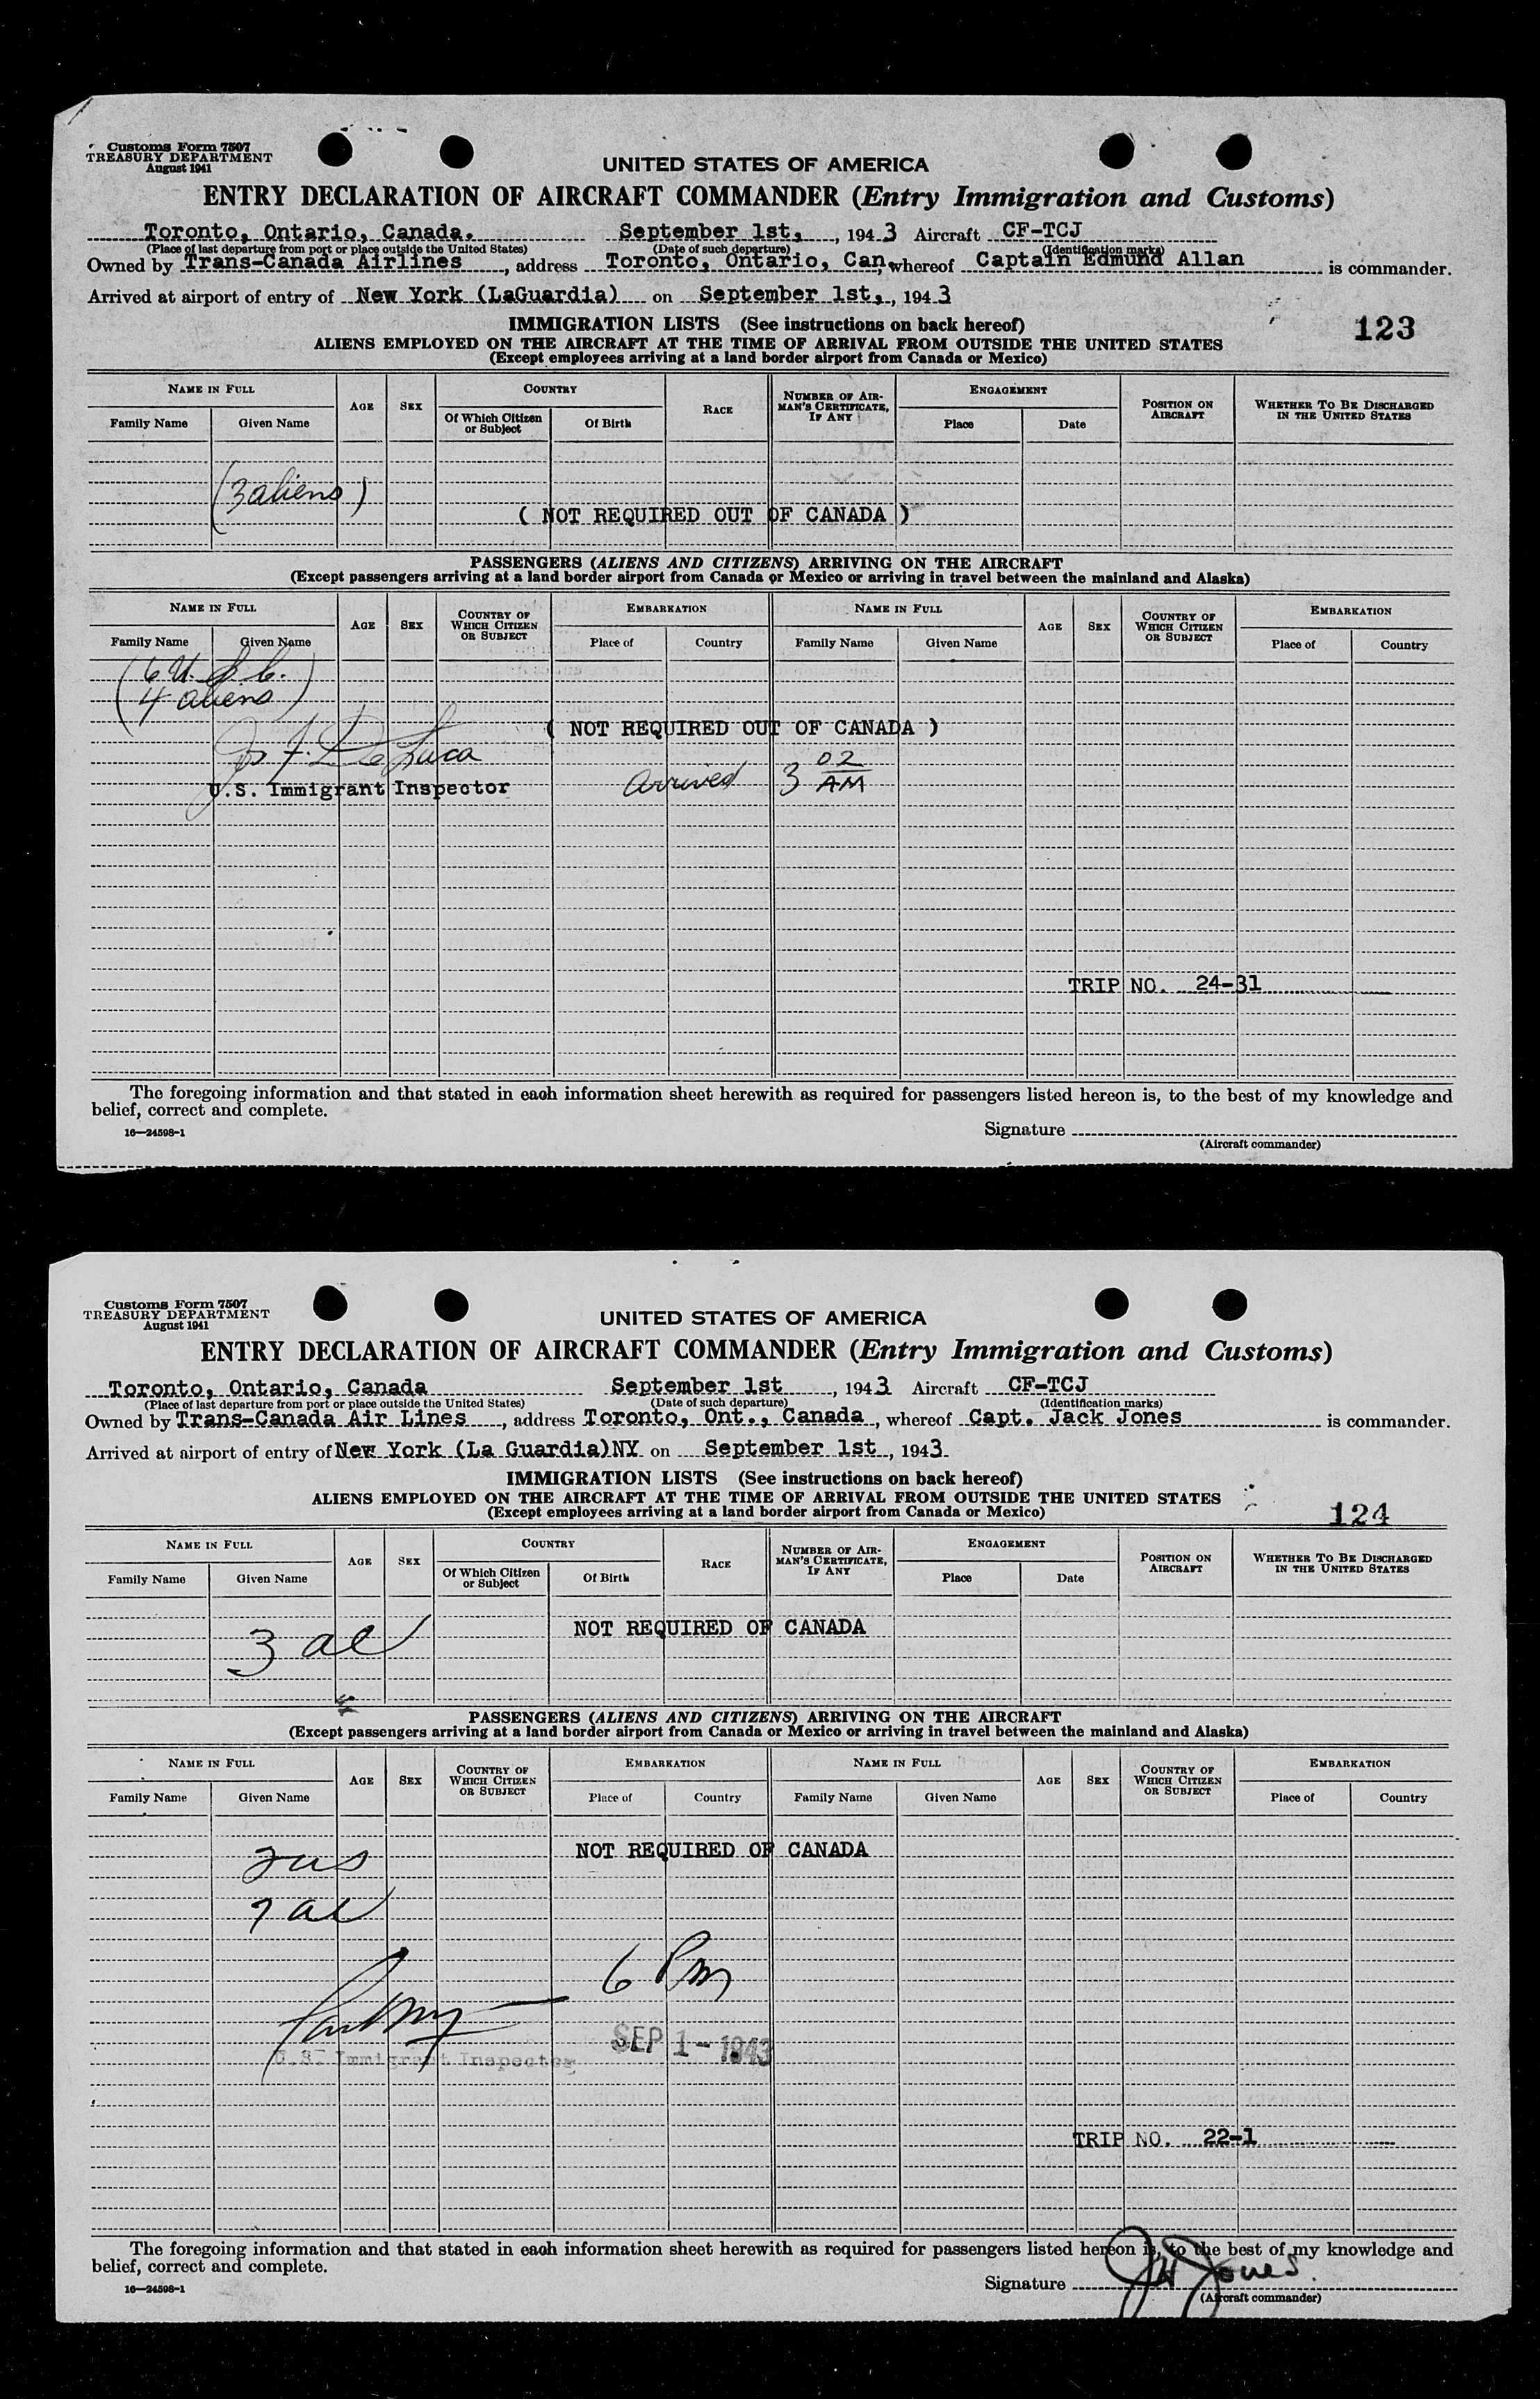 Customs Form 7507
TREASURY DEPARTMENT
August 1941
UNITED STATES OF AMERICA
ENTRY DECLARATION OF AIRCRAFT COMMANDER (Entry Immigration and Customs)
Toronto, Ontario, Canada. September 1st, , 1943 Aircraft CF-TCJ
(Place of last departure from port or place outside the United States) (Date of such departure) (Identification marks)
Owned by Trans-Canada Airlines , address Toronto, Ontario, Can, whereof Captain Edmund Allan is commander.
Arrived at airport of entry of New York (LaGuardia) on September 1st, , 1943
IMMIGRATION LISTS (See instructions on back hereof)
123
ALIENS EMPLOYED ON THE AIRCRAFT AT THE TIME OF ARRIVAL FROM OUTSIDE THE UNITED STATES
(Except employees arriving at a land border airport from Canada or Mexico)
NAME IN FULL AGE SEX COUNTRY RACE NUMBER OF AIRMAN'S CERTIFICATE, IF ANY ENGAGEMENT POSITION ON AIRCRAFT WHETHER TO BE DISCHARGED IN THE UNITED STATES
Family Name Given Name Of Which Citizen or Subject Of Birth Place Date
(3 aliens)
( NOT REQUIRED OUT OF CANADA )
PASSENGERS (ALIENS AND CITIZENS) ARRIVING ON THE AIRCRAFT
(Except passengers arriving at a land border airport from Canada or Mexico or arriving in travel between the mainland and Alaska)
NAME IN FULL AGE SEX COUNTRY OF WHICH CITIZEN OR SUBJECT EMBARKATION NAME IN FULL AGE SEX COUNTRY OF WHICH CITIZEN OR SUBJECT EMBARKATION
Family Name Given Name Place of Country Family Name Given Name Place of Country
(6 U.S.C.
4 aliens)
( NOT REQUIRED OUT OF CANADA )
Jos F. DeLuca
U.S. Immigrant Inspector arrived 3 02 AM
TRIP NO. 24-31
The foregoing information and that stated in each information sheet herewith as required for passengers listed hereon is, to the best of my knowledge and
belief, correct and complete.
16—24598-1
Signature
(Aircraft commander)
Customs Form 7507
TREASURY DEPARTMENT
August 1941
UNITED STATES OF AMERICA
ENTRY DECLARATION OF AIRCRAFT COMMANDER (Entry Immigration and Customs)
Toronto, Ontario, Canada September 1st , 1943 Aircraft CF-TCJ
(Place of last departure from port or place outside the United States) (Date of such departure) (Identification marks)
Owned by Trans-Canada Air Lines , address Toronto, Ont., Canada , whereof Capt. Jack Jones is commander.
Arrived at airport of entry of New York (La Guardia)NY on September 1st , 1943
IMMIGRATION LISTS (See instructions on back hereof)
ALIENS EMPLOYED ON THE AIRCRAFT AT THE TIME OF ARRIVAL FROM OUTSIDE THE UNITED STATES
124
(Except employees arriving at a land border airport from Canada or Mexico)
NAME IN FULL AGE SEX COUNTRY RACE NUMBER OF AIRMAN'S CERTIFICATE, IF ANY ENGAGEMENT POSITION ON AIRCRAFT WHETHER TO BE DISCHARGED IN THE UNITED STATES
Family Name Given Name Of Which Citizen or Subject Of Birth Place Date
NOT REQUIRED OF CANADA
3 al
PASSENGERS (ALIENS AND CITIZENS) ARRIVING ON THE AIRCRAFT
(Except passengers arriving at a land border airport from Canada or Mexico or arriving in travel between the mainland and Alaska)
NAME IN FULL AGE SEX COUNTRY OF WHICH CITIZEN OR SUBJECT EMBARKATION NAME IN FULL AGE SEX COUNTRY OF WHICH CITIZEN OR SUBJECT EMBARKATION
Family Name Given Name Place of Country Family Name Given Name Place of Country
NOT REQUIRED OF CANADA
7 al
6 Pm
SEP 1 - 1943
U.S. Immigrant Inspector
TRIP NO. 22-1
The foregoing information and that stated in each information sheet herewith as required for passengers listed hereon is, to the best of my knowledge and
belief, correct and complete.
16—24598-1
Signature J H Jones.
(Aircraft commander)